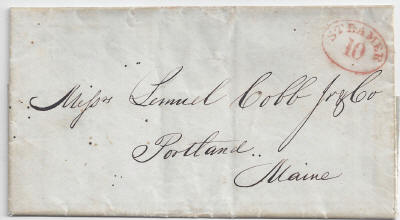 STEAMER
10
Messrs Lemuel Cobb Jr & Co
Portland
Maine